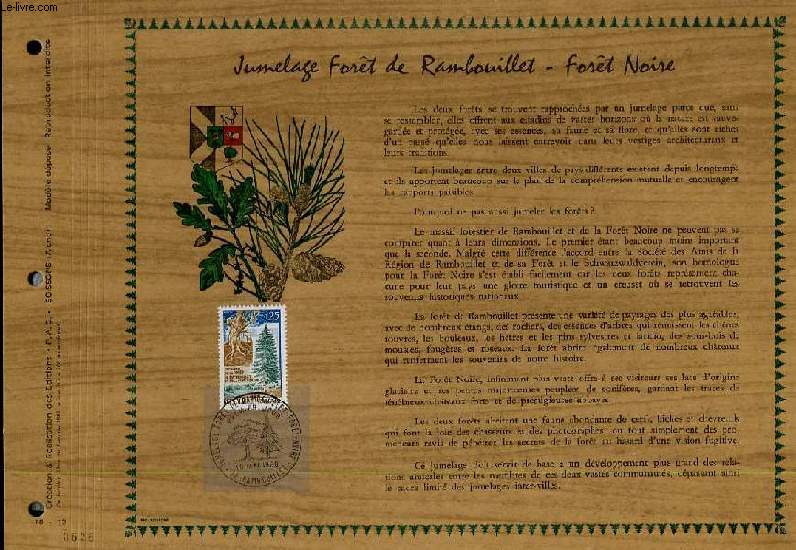 Le-livre.com
Jumelage Forêt de Rambouillet - Forêt Noire
Les deux forêts se trouvent rapprochées par un jumelage parce que, sans
se ressembler, elles offrent aux citadins de vastes horizons où la nature est sauve-
gardée et protégée, avec ses essences, sa faune et sa flore, et qu'elles sont riches
d'un passé qu'elles nous laissent entrevoir dans leurs vestiges architecturaux et
leurs traditions.
Les jumelages entre deux villes de pays différents existent depuis longtemps
et ils apportent beaucoup sur le plan de la compréhension mutuelle et encouragent
les rapports paisibles.
Pourquoi ne pas aussi jumeler les forêts ?
Le massif forestier de Rambouillet et de la Forêt Noire ne peuvent pas se
comparer quant à leurs dimensions. Le premier étant beaucoup moins important
que la seconde. Malgré cette différence l'accord entre la Société des Amis de la
Région de Rambouillet et de sa Forêt et le Schwarzwaldverein, son homologue
pour la Forêt Noire s'est établi facilement car les deux forêts représentent cha-
cune pour leur pays une gloire touristique et un creuset où se retrouvent les
souvenirs historiques nationaux.
La forêt de Rambouillet présente une variété de paysages des plus agréables,
avec de nombreux étangs, des rochers, des essences d'arbres qui réunissent les chênes
rouvres, les bouleaux, les hêtres et les pins sylvestres et laricio, des sous-bois de
mousses, fougères et roseaux. La forêt abrite également de nombreux châteaux
qui renferment les souvenirs de notre histoire.
La Forêt Noire, infiniment plus vaste offre à ses visiteurs ses lacs d'origine
glaciaire et ses monts majestueux peuplés de conifères, gardant les traces de
Les deux forêts abritent une faune abondante de cerfs, biches et chevreuils
qui font la joie des chasseurs et des photographes ou tout simplement des pro-
meneurs ravis de pénétrer les secrets de la forêt au hasard d'une vision fugitive.
Ce jumelage doit servir de base à un développement plus grand des rela-
tions amicales entre les membres de ces deux vastes communautés, dépassant ainsi
le cadre limité des jumelages inter-villes.
0,25
Création & Réalisation des Editions
SOISSONS
Modèle déposé
Reproduction Interdite